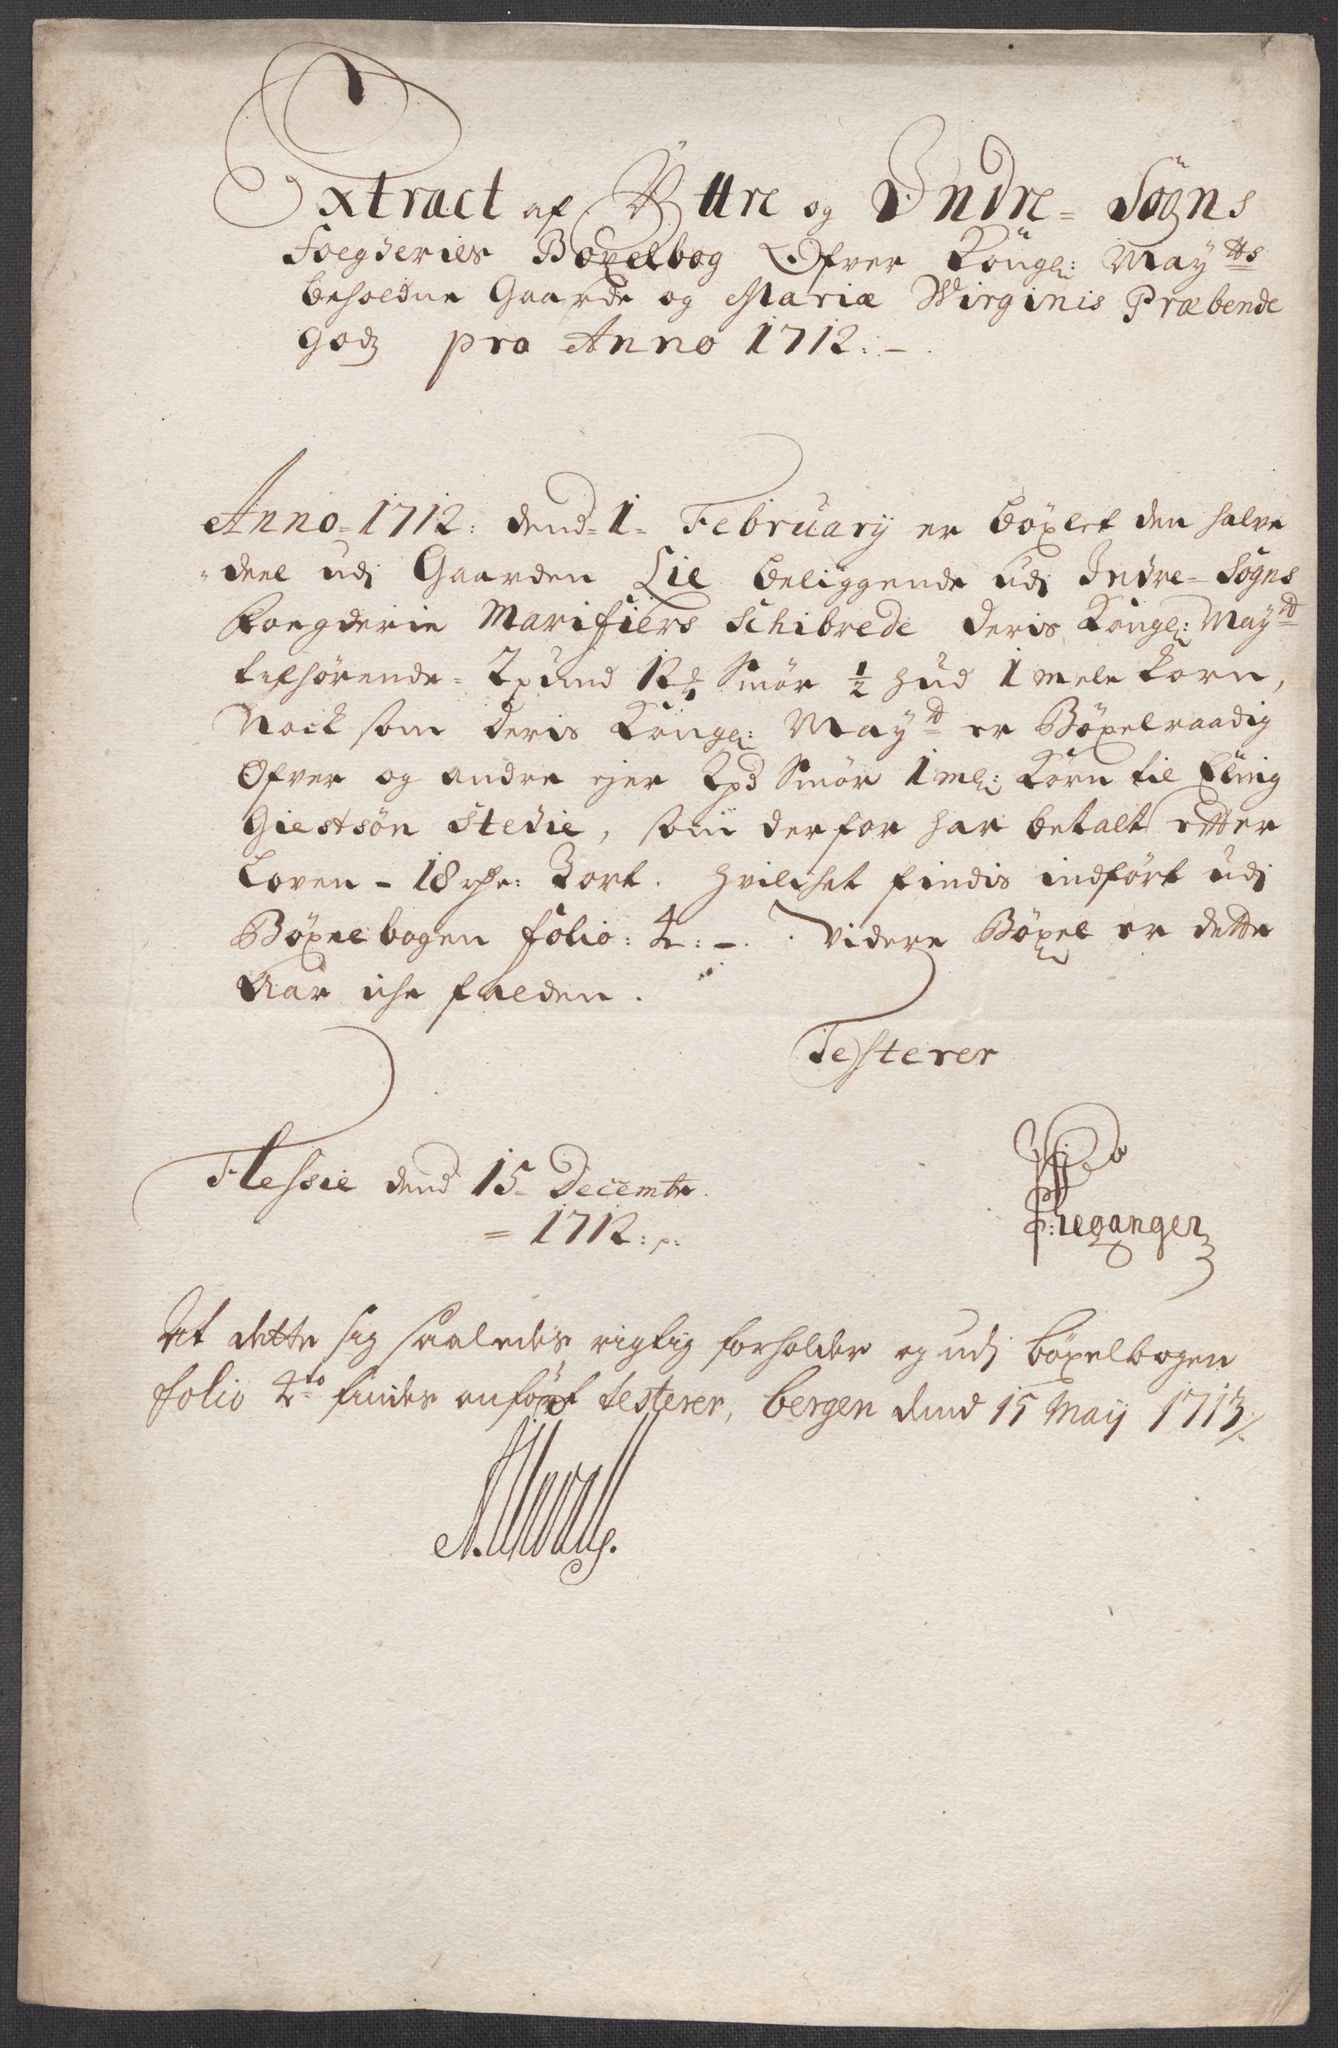 Extract af Yttre og Indre= Sogns
Foegderies Böxelbog Ofver Kongl: Maytts
beholdne Gaarde og Mariæ Wirginis Præbende
Godz pro Anno 1712:-
Anno=1712: dend=1= February er böxlet den halve
deel udj Gaarden Lie beliggende udj Indre= Sogns
Foegderie Marifiers Schibrede deris Kongl: Mayd
tilhørende= 2 pund 12 Smör ½ hud 1 mele Korn,
Nock som deris Kongl: Mayd er Böxelraadig
Ofver og andre ejer 2 pd Smör 1 ml: Korn til Elling
Giestsön Stedie, som derfor har betalt etter
Loven - 18 Kort. hvilchet findis indfört udj
Böxelbogen folio: 4:-. Videre Böxel er dette
Aar iche falden.
Testerer
Flessie dend 15= Decembr.
= 1712:
Fregangen
At dette sig saaledes rigtig forholder og udj böxelbogen
folio 4to findes anfört testerer, bergen dend 15 Maij 1713